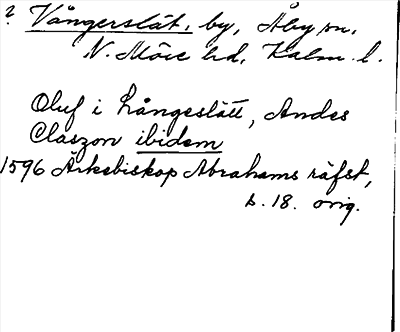 ? Vångerslät, by, Åby sn,
N. Möre hd, Kalm. l.
Oluf i Långeslätt, Andes
Claszon ibidem
1596 Ärkebiskop Abrahams räfst,
s. 18. orig.